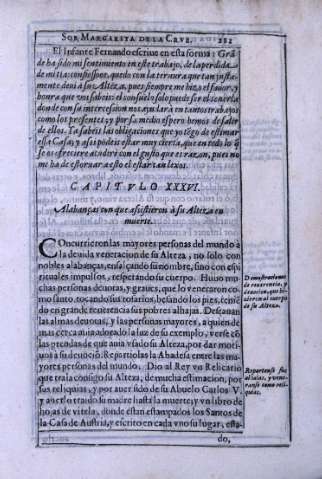 SOR MARGARITA DE LA CRVZ. 282
El Infante Fernando escriue en esta forma: Grā
de ha sido mi sentimiento en este trabajo, de la perdida
de mi tia: confiesso os, quedo con la ternura que tan justa-
mente deuì à su Alteza, pues siempre me hizo el fauor, y
honra que vos sabeis: el consuelo solo puede ser el tenerla
donde con su intercession nos ayudarà en tantos trabajos
como los presentes; y por su medio espero hemos de salir
de ellos. Ya sabeis las obligaciones que yo tēgo de estimar
essa Casa; y assi podeis estar muy cierta, que en todo lo q̄
se os ofreciere acudirè con el gusto que es razon, pues no
me ha de estoruar a esto el estar tan lexos.
CAPITVLO XXXVI.
Alabanças con que assistieron à su Alteza en
muerte.
COncurrieron las mayores personas del mundo à
la deuida veneracion de su Alteza, no solo con
nobles alabanças, ensalçando su nombre, sino con espi-
rituales impulsos, respetando su cuerpo. Huuo mu-
chas personas deuotas, y graues, que lo veneraron co-
mo santo, tocando sus rosarios, besando los pies, teniē-
do en grande reuerencia sus pobres alhajas. Desean
las almas deuotas, y las personas mayores, a quien de
mas cerca auia adorado la luz de su exemplo, y
las prendas de que auia vsado su Alteza, por dar moti-
uo a su deuociō. Repartiolas la Abadesa entre las ma-
yores personas del mundo. Dio al Rey vn Relicario
que traìa consigo su Alteza, de mucha estimacion, por
sus reliquias, y por auer sido de su Abuelo Carlos V.
y auerlo traido su madre hasta la muerte; y vn libro de
hojas de vitela, donde estàn estampados los Santos de
la Casa de Austria, y escrito en cada vno su lugar, esta-
do,
Demonstraciones
de reuerencia, y
deuocion, que hi-
zieron al cuerpo
de su Alteza.
Repartense sus
alhajas, y vene-
ranse como reli-
quias.